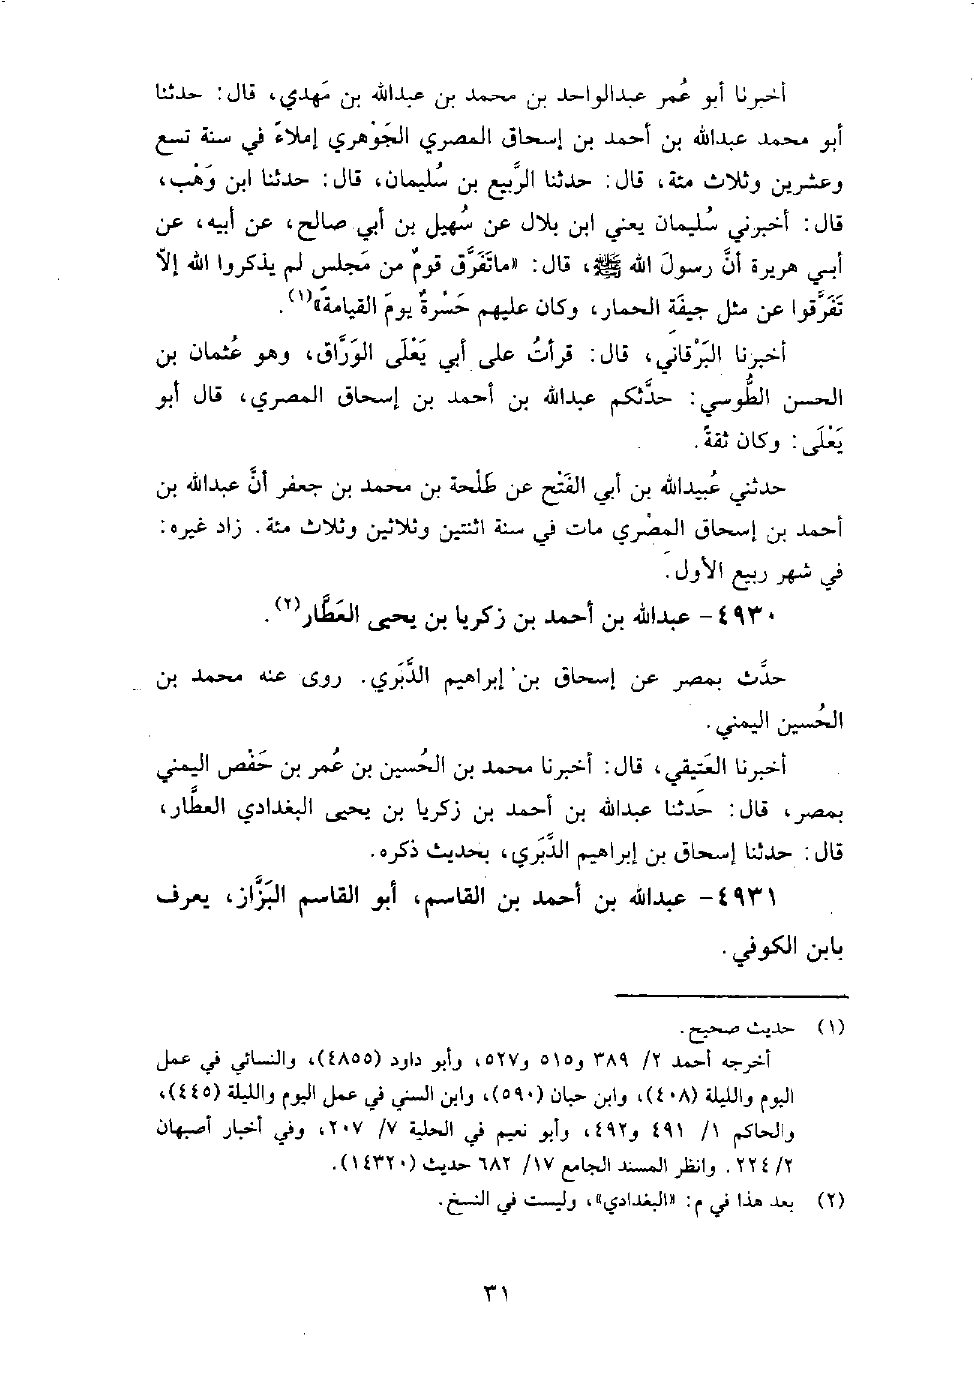 أخبرنا أبو عُمر عبدالواحد بن محمد بن عبدالله بن مَهدي، قال: حدثنا
أبو محمد عبدالله بن أحمد بن إسحاق المصري الجَوْهري إملاءً في سنة تسع
وعشرين وثلاث مئة، قال: حدثنا الرَّبيع بن سُليمان، قال: حدثنا ابن وَهْب،
قال: أخبرني سُليمان يعني ابن بلال عن سُهيل بن أبي صالح، عن أبيه، عن
أبي هريرة أنَّ رسولَ الله ﷺ، قال: «ماتَفَرَّق قومٌ من مَجلس لم يذكروا الله إلاّ
تَفَرَّقوا عن مثل جيفَة الحمار، وكان عليهم حَسْرةٌ يومَ القيامة»(١).
أخبرنا البَرْقاني، قال: قرأتُ على أبي يَعْلَى الوَرَّاق، وهو عُثمان بن
الحسن الطُّوسي: حدَّثكم عبدالله بن أحمد بن إسحاق المصري، قال أبو
يَعْلَى: وكان ثقةً.
حدثني عُبيدالله بن أبي الفَتْح عن طَلْحة بن محمد بن جعفر أنَّ عبدالله بن
أحمد بن إسحاق المصْري مات في سنة اثنتين وثلاثين وثلاث مئة. زاد غيره:
في شهر ربيع الأول.
٤٩٣٠- عبدالله بن أحمد بن زكريا بن يحيى العَطَّار(٢).
حدَّث بمصر عن إسحاق بن إبراهيم الدَّبَري. روى عنه محمد بن
الحُسين اليمني.
أخبرنا العَتِيقي، قال: أخبرنا محمد بن الحُسين بن عُمر بن حَفْص اليمني
بمصر، قال: حدثنا عبدالله بن أحمد بن زكريا بن يحيى البغدادي العطَّار،
قال: حدثنا إسحاق بن إبراهيم الدَّبَري، بحديث ذكره.
٤٩٣١- عبدالله بن أحمد بن القاسم، أبو القاسم البَزَّاز، يعرف
بابن الكوفي.
(١) حديث صحيح.
أخرجه أحمد ٢/ ٣٨٩ و٥١٥ و٥٢٧، وأبو داود (٤٨٥٥)، والنسائي في عمل
اليوم والليلة (٤٠٨)، وابن حبان (٥٩٠)، وابن السني في عمل اليوم والليلة (٤٤٥)،
والحاكم ١/ ٤٩١ و٤٩٢، وأبو نعيم في الحلية ٧/ ٢٠٧، وفي أخبار أصبهان
٢/ ٢٢٤. وانظر المسند الجامع ١٧/ ٦٨٢ حديث (١٤٣٢٠).
(٢) بعد هذا في م: «البغدادي»، وليست في النسخ.
٣١